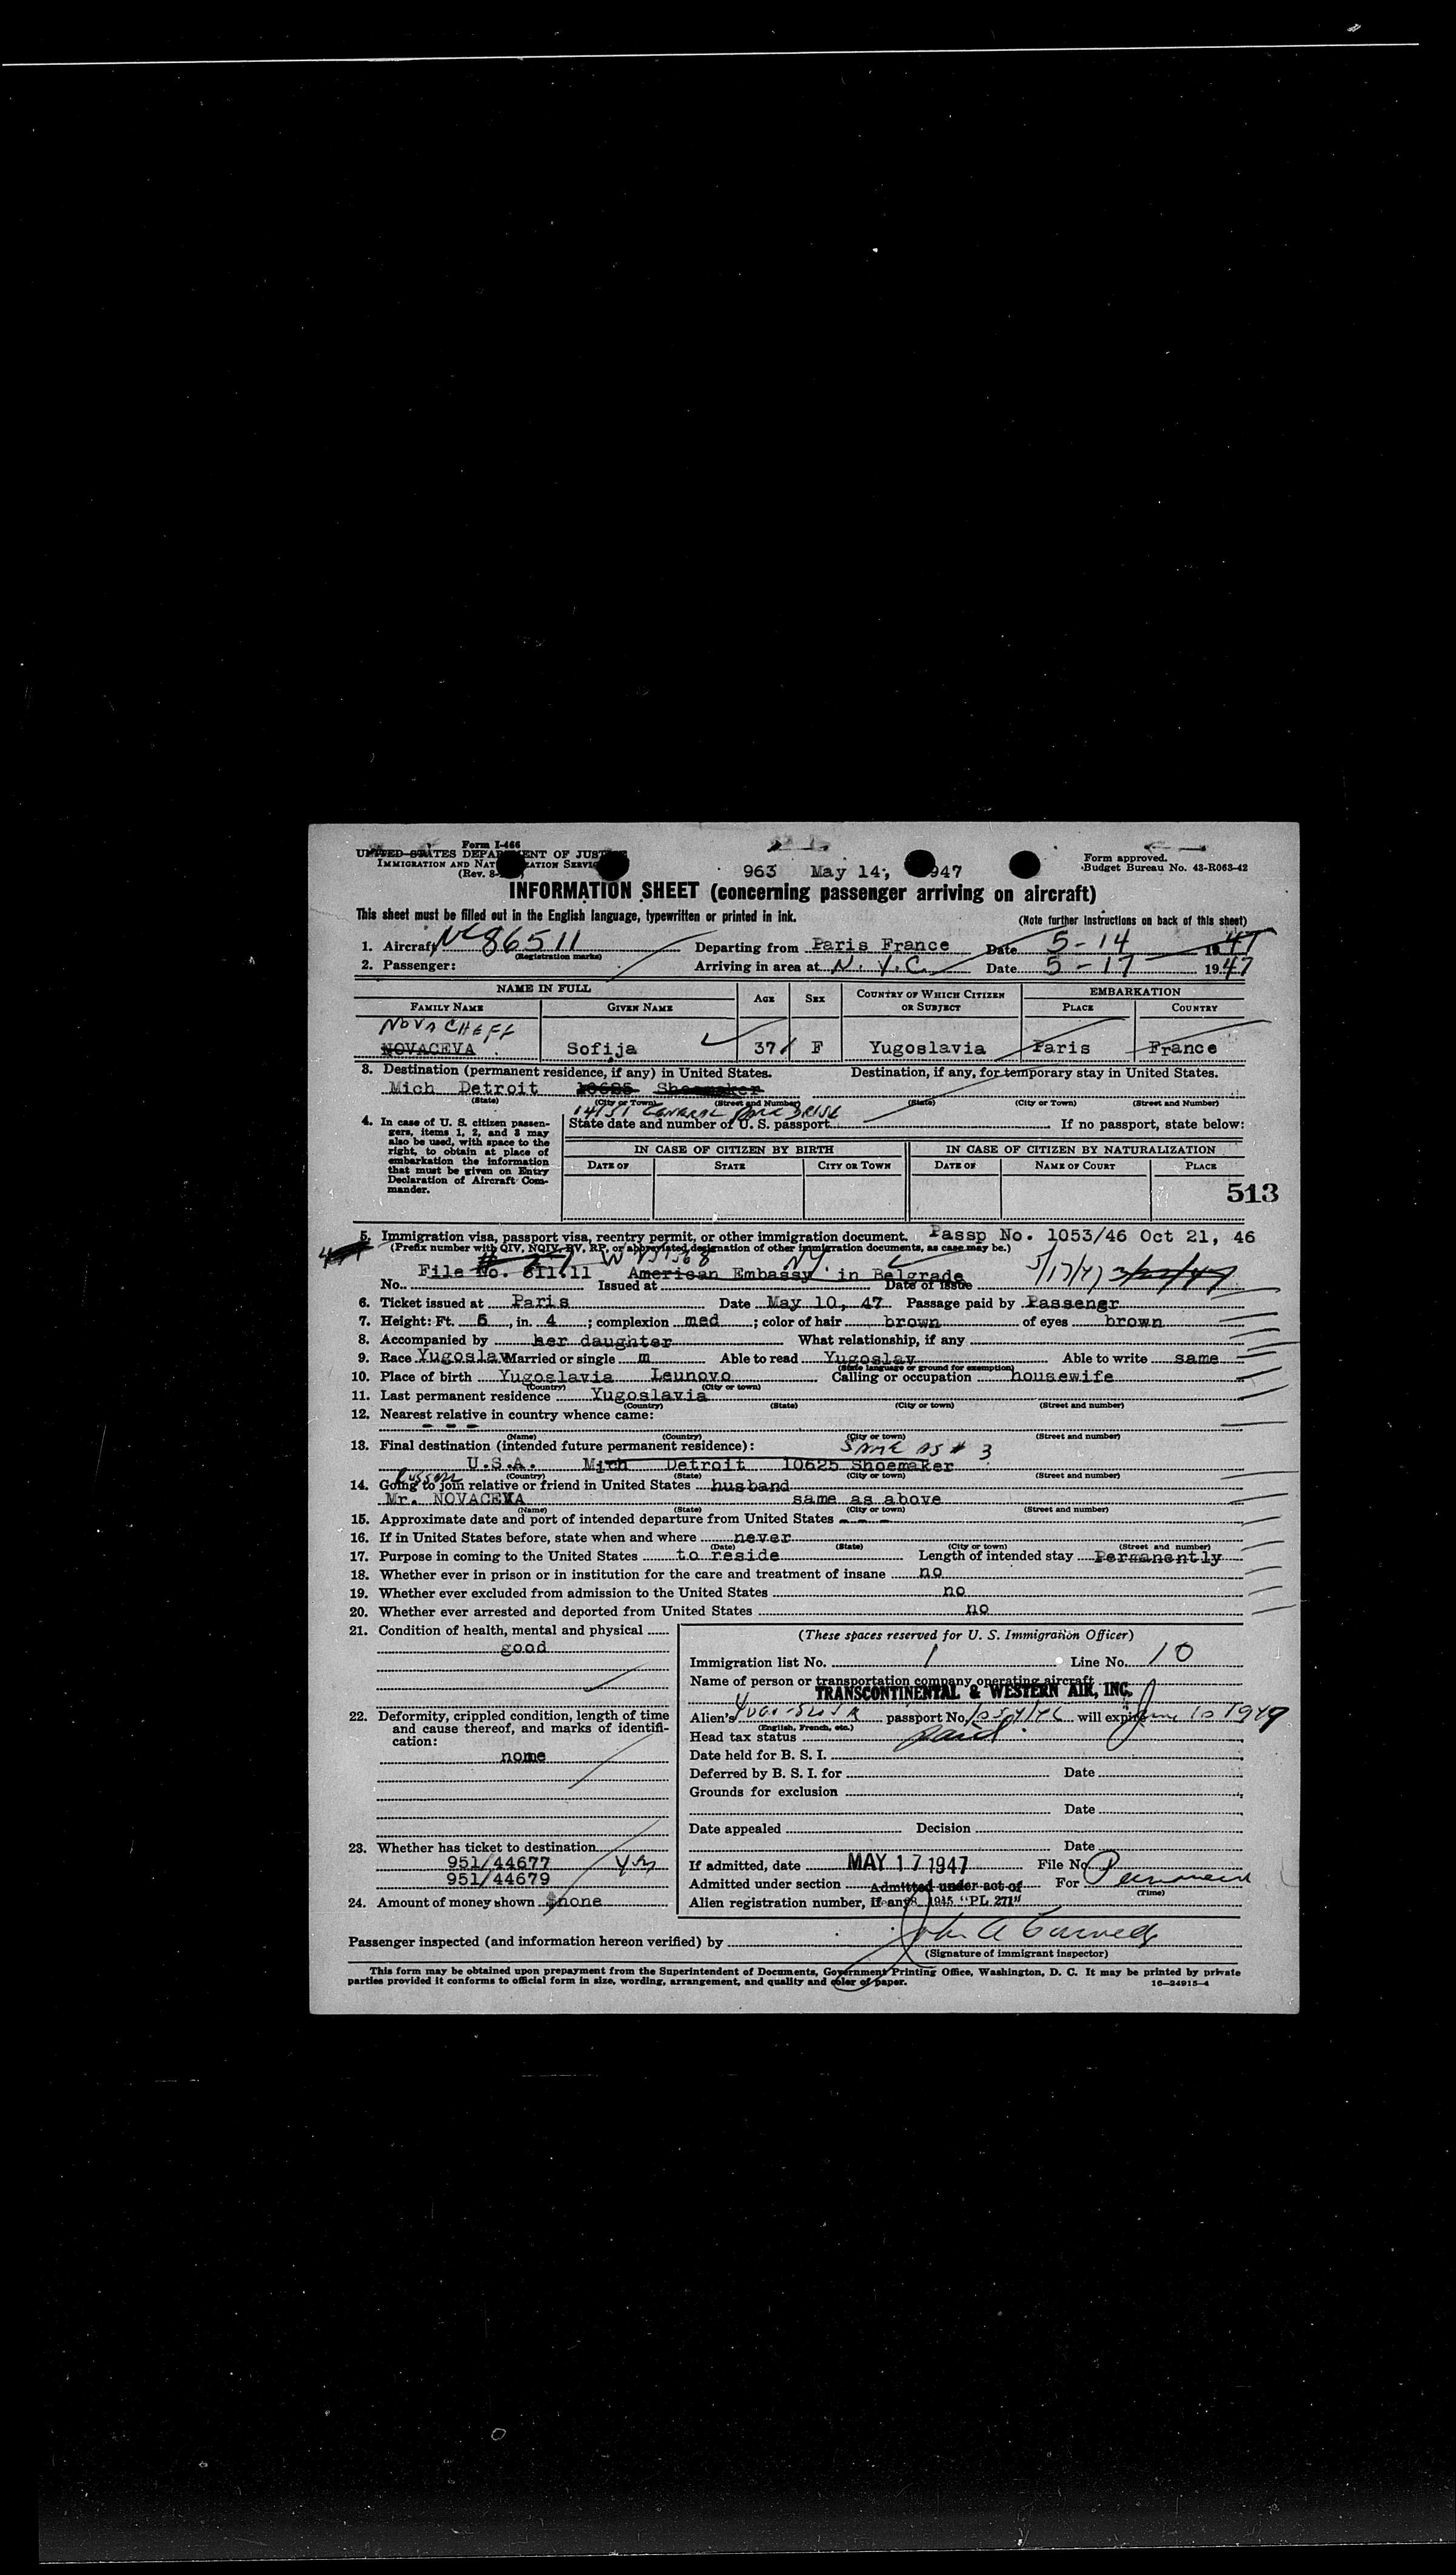 Form I-466
UNITED STATES DEPARTMENT OF JUSTICE
IMMIGRATION AND NATURALIZATION SERVICE
(Rev. 8-
963 May 14, 1947
Form approved.
Budget Bureau No. 43-R063-42
INFORMATION SHEET (concerning passenger arriving on aircraft)
This sheet must be filled out in the English language, typewritten or printed in ink.
(Note further instructions on back of this sheet)
1. Aircraft NC86511 Departing from Paris France Date 5-14 1947
(Registration marks)
2. Passenger: Arriving in area at N.Y.C. Date 5-17 1947
NAME IN FULL AGE SEX COUNTRY OF WHICH CITIZEN OR SUBJECT EMBARKATION
FAMILY NAME GIVEN NAME PLACE COUNTRY
NOVACHEFF
NOVACEVA Sofija 37 F Yugoslavia Paris France
3. Destination (permanent residence, if any) in United States. Destination, if any, for temporary stay in United States.
Mich Detroit 10625 Shoemaker
(State) (City or Town) (Street and Number) (State) (City or Town) (Street and Number)
14151 GENERAL
4. In case of U. S. citizen passengers, items 1, 2, and 3 may also be used, with space to the right, to obtain at place of embarkation the information that must be given on Entry Declaration of Aircraft Commander.
State date and number of U. S. passport If no passport, state below:
IN CASE OF CITIZEN BY BIRTH IN CASE OF CITIZEN BY NATURALIZATION
DATE OF STATE CITY OR TOWN DATE OF NAME OF COURT PLACE
513
5. Immigration visa, passport visa, reentry permit, or other immigration document. Passp No. 1053/46 Oct 21, 46
(Prefix number with QIV, NQIV, PV, RP, or abbreviated designation of other immigration documents, as case may be.)
File No. 811.11 American Embassy in Belgrade 5/17/47
No. Issued at Date of issue
6. Ticket issued at Paris Date May 10, 47 Passage paid by Passenger
7. Height: Ft. 5, in. 4; complexion med; color of hair brown of eyes brown
8. Accompanied by her daughter What relationship, if any
9. Race Yugoslav Married or single m Able to read Yugoslav Able to write same
(State language or ground for exemption)
10. Place of birth Yugoslavia Leunovo Calling or occupation housewife
(Country) (City or town)
11. Last permanent residence Yugoslavia
(Country) (State) (City or town) (Street and number)
12. Nearest relative in country whence came:
- - -
(Name) (Country) (City or town) (Street and number)
13. Final destination (intended future permanent residence): SAME AS # 3
U.S.A. Mich Detroit 10625 Shoemaker
(Country) (State) (City or town) (Street and number)
14. Going to join relative or friend in United States husband
Mr. NOVACEVA same as above
(Name) (State) (City or town) (Street and number)
15. Approximate date and port of intended departure from United States - - -
16. If in United States before, state when and where never
(Date) (State) (City or town) (Street and number)
17. Purpose in coming to the United States to reside Length of intended stay Permanently
18. Whether ever in prison or in institution for the care and treatment of insane no
19. Whether ever excluded from admission to the United States no
20. Whether ever arrested and deported from United States no
21. Condition of health, mental and physical
good
22. Deformity, crippled condition, length of time and cause thereof, and marks of identification:
nome
23. Whether has ticket to destination
951/44677 yes
951/44679
24. Amount of money shown $none
(These spaces reserved for U. S. Immigration Officer)
Immigration list No. 1 Line No. 10
Name of person or transportation company operating aircraft
TRANSCONTINENTAL & WESTERN AIR, INC.
Alien's passport No. will expire June 10 1949
(English, French, etc.)
Head tax status paid
Date held for B. S. I.
Deferred by B. S. I. for Date
Grounds for exclusion
Date
Date appealed Decision
Date
If admitted, date MAY 17 1947 File No.
Admitted under section Admitted under act of For Permanent
(Time)
Alien registration number, if any 1945 "PL 271"
Passenger inspected (and information hereon verified) by John A
(Signature of immigrant inspector)
This form may be obtained upon prepayment from the Superintendent of Documents, Government Printing Office, Washington, D. C. It may be printed by private
parties provided it conforms to official form in size, wording, arrangement, and quality and color of paper. 16—24915-4